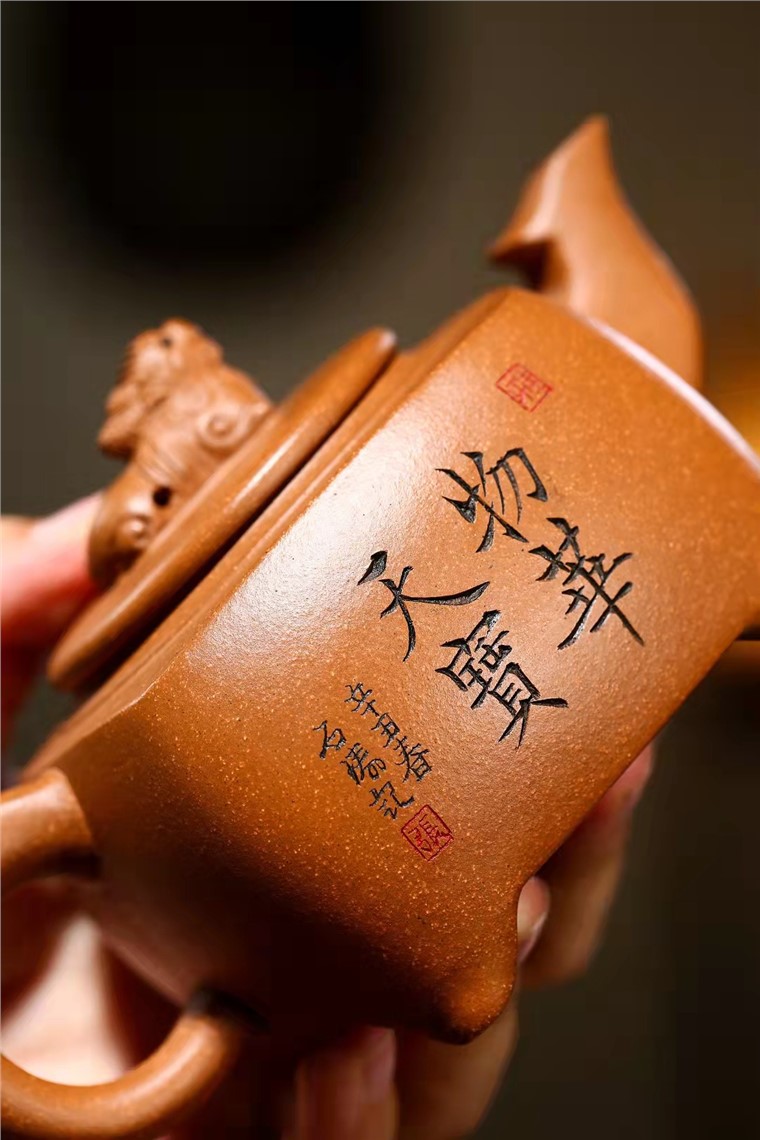 物華
天寶
辛丑春
石 記
張